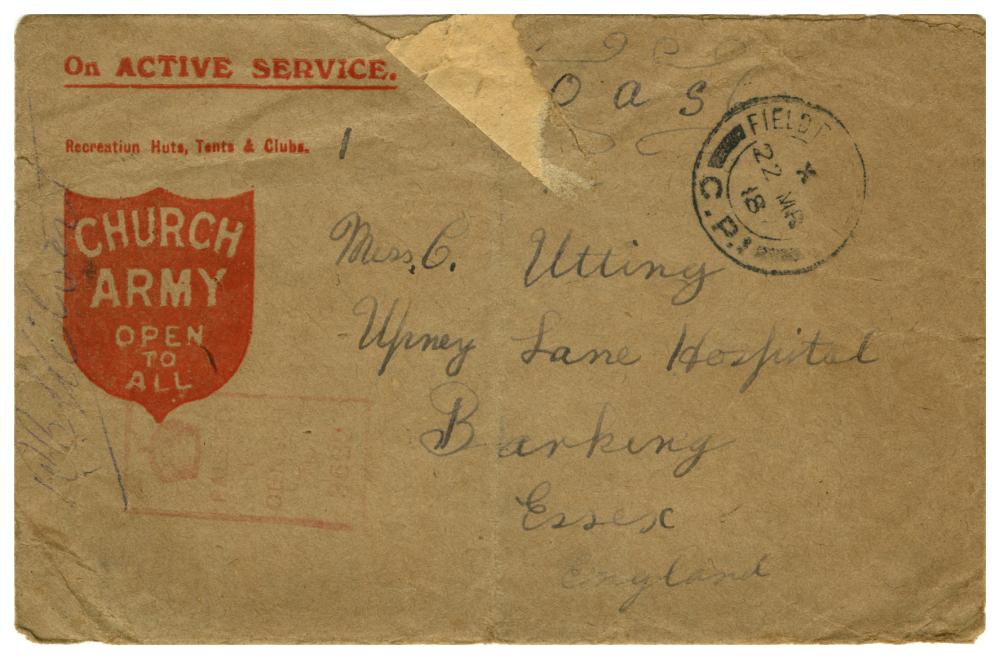 On ACTIVE SERVICE.
Recreation Huts, Tents & Clubs.
CHURCH
ARMY
OPEN
TO
ALL
o a s
FIELD
X
22 MR
18
Miss, C. Utting
Upney Lane Hospital
Barking
Essex
England